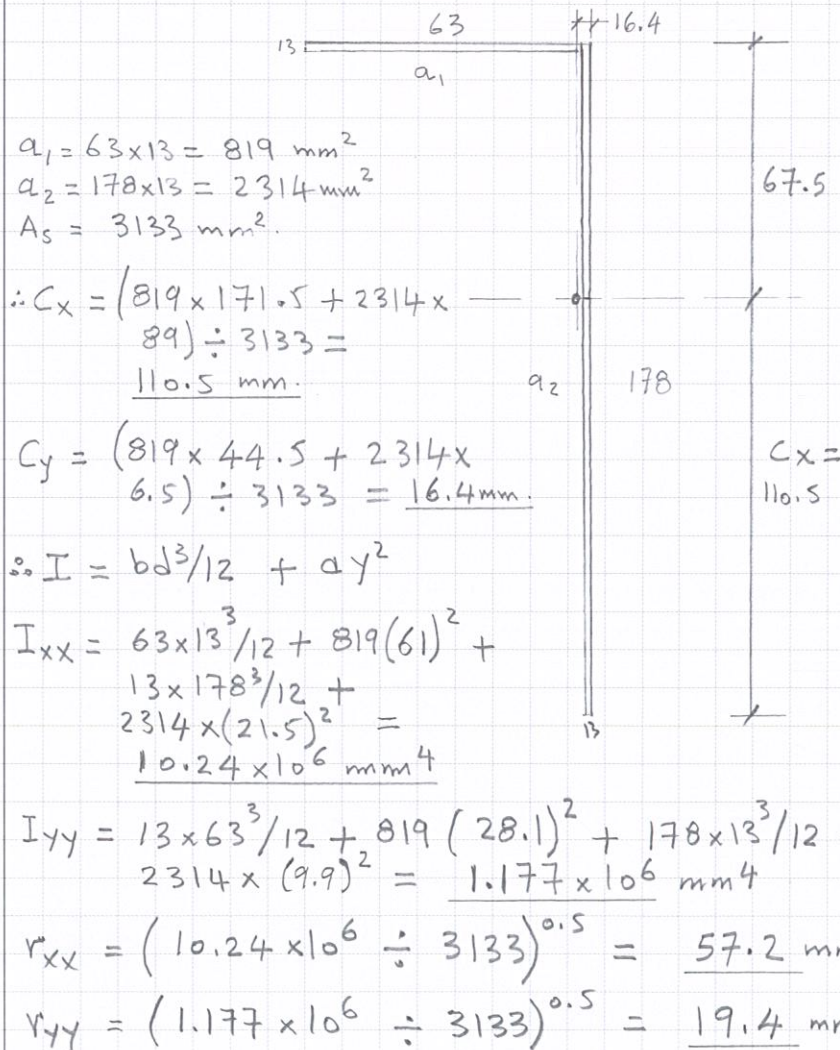 63
16.4
13
a₁
a₁ = 63×13 = 819 mm²
a₂ = 178×13 = 2314 mm²
Aₛ = 3133 mm².
67.5
∴ Cx = (819 × 171.5 + 2314 ×
89) ÷ 3133 =
110.5 mm.
a₂
178
Cy = (819 × 44.5 + 2314×
6.5) ÷ 3133 = 16.4mm.
Cx =
110.5
∴ I = bd³/12 + ay²
Ixx = 63×13³/12 + 819(61)² +
13×178³/12 +
2314×(21.5)² =
10.24 ×10⁶ mm⁴
13
Iyy = 13×63³/12 + 819 (28.1)² + 178×13³/12
2314 × (9.9)² = 1.177×10⁶ mm⁴
rxx = (10.24 ×10⁶ ÷ 3133)^0.5 = 57.2 m
ryy = (1.177 ×10⁶ ÷ 3133)^0.5 = 19.4 m